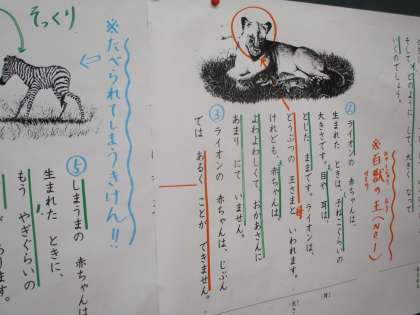 大きく なって
いくのでしょう。
※百獣の王(No1)
② ライオンの 赤ちゃんは、
生まれた ときは、子ねこぐらいの
大きさです。目や 耳は、
とじた ままです。ライオンは、
どうぶつの 王さまと いわれます。
けれども、赤ちゃんは、
よわよわしくて、おかあさんに
あまり にて いません。
③ ライオンの 赤ちゃんは、じぶん
では あるく ことが できません。
そっくり
※たべられてしまうきけん!!
⑤ しまうまの 赤ちゃんは
生まれた ときに、
もう やぎぐらいの
あります。